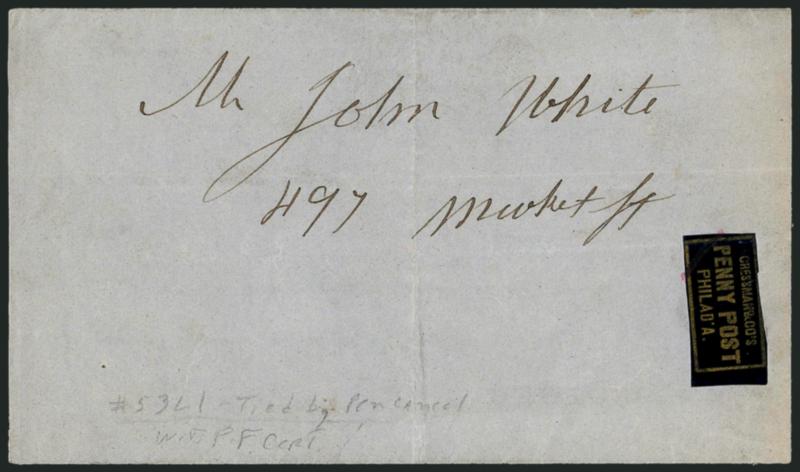 Mr John White
497 Market St
CRESSMAN & CO'S
PENNY POST
PHILAD'A.
#53L1 - Tied by Pen cancel
With P.F. Cert.